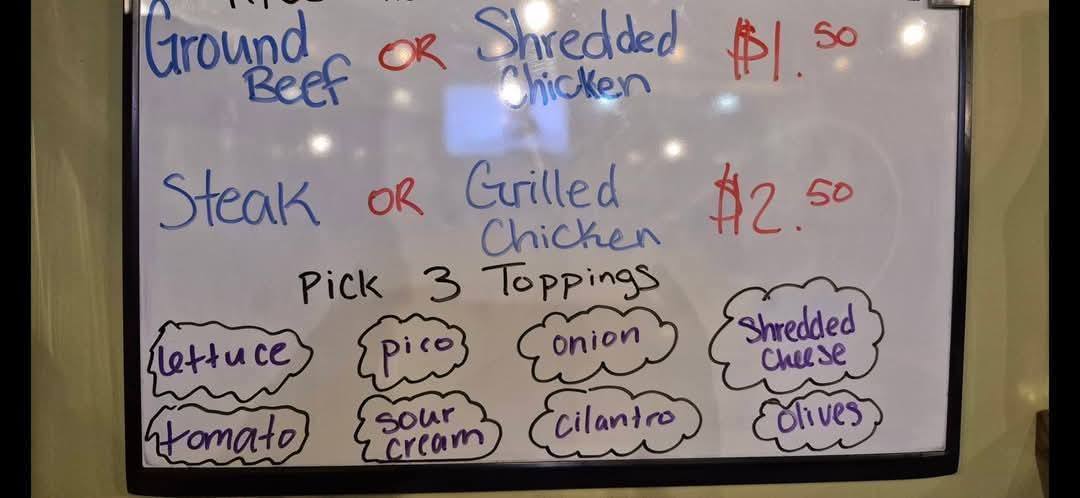 Ground OR Shredded $1.50
Beef Chicken
Steak OR Grilled $2.50
Chicken
Pick 3 Toppings
lettuce pico onion Shredded Cheese
tomato sour cream cilantro olives